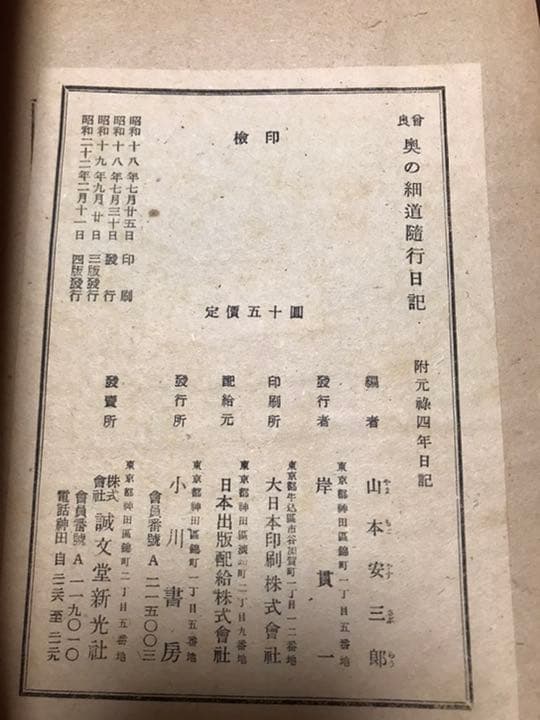 曾良 奥の細道隨行日記
附元祿四年日記
檢印
定價五十圓
昭和十八年七月廿五日 印刷
昭和十八年七月三十日 發行
昭和十九年九月廿日 三版發行
昭和二十二年二月十一日 四版發行
編者 山本安三郎
やま もと やす さぶ らう
東京都神田區錦町一丁目五番地
發行者 岸貫一
東京都牛込區市谷加賀町一丁目一二番地
印刷所 大日本印刷株式會社
東京都神田區淡路町二丁目九番地
配給元 日本出版配給株式會社
東京都神田區錦町一丁目五番地
發行所 小川書房
會員番號 A二一五〇〇三
東京都神田區錦町一丁目五番地
發賣所 株式會社 誠文堂新光社
會員番號 A一一九〇一〇
電話神田 自二二六至二二九